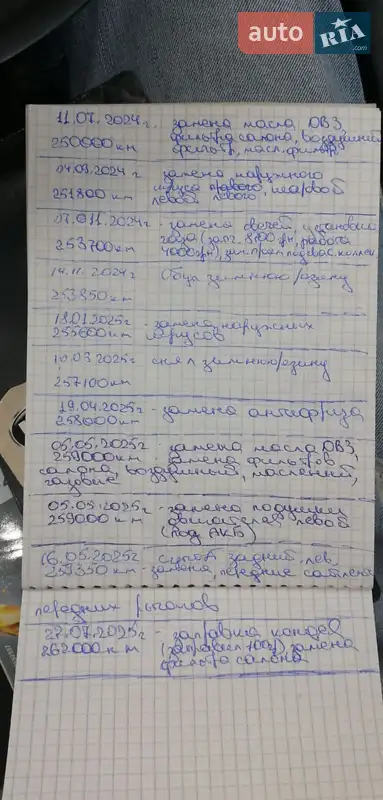 auto RIA.com
11.07.2024г. замена масла ДВЗ,
фильтра салона, воздушний
250000 км фильтр, масл. фильтр
04.09.2024г замена наружного
шруса правого, шаровой
251800 км левой левого
07.011.2024г - замена свечей, установка
газа (запч. 8100 грн, работа
253700 км 4000грн),
14.11.2024г Обул зимнюю резину
253850 км
18.01.2025г - замена наружных
255600 км шрусов
10.03.2025г снял зимнюю резину
257100 км
19.04.2025г - замена антифриза
258000 км
05.05.2025г - замена масла ДВЗ,
259000 км замена фильтров
салона, воздушный, масленый,
газовые
05.05.2025г - замена подушки
259000 км двигателя левой
(под АКБ)
16.05.2025г супорт задний лев
259350 км - замена, передние сайлент
передних рычагов
27.07.2025г - заправка кондёр
262000 км замена
фильтра салона